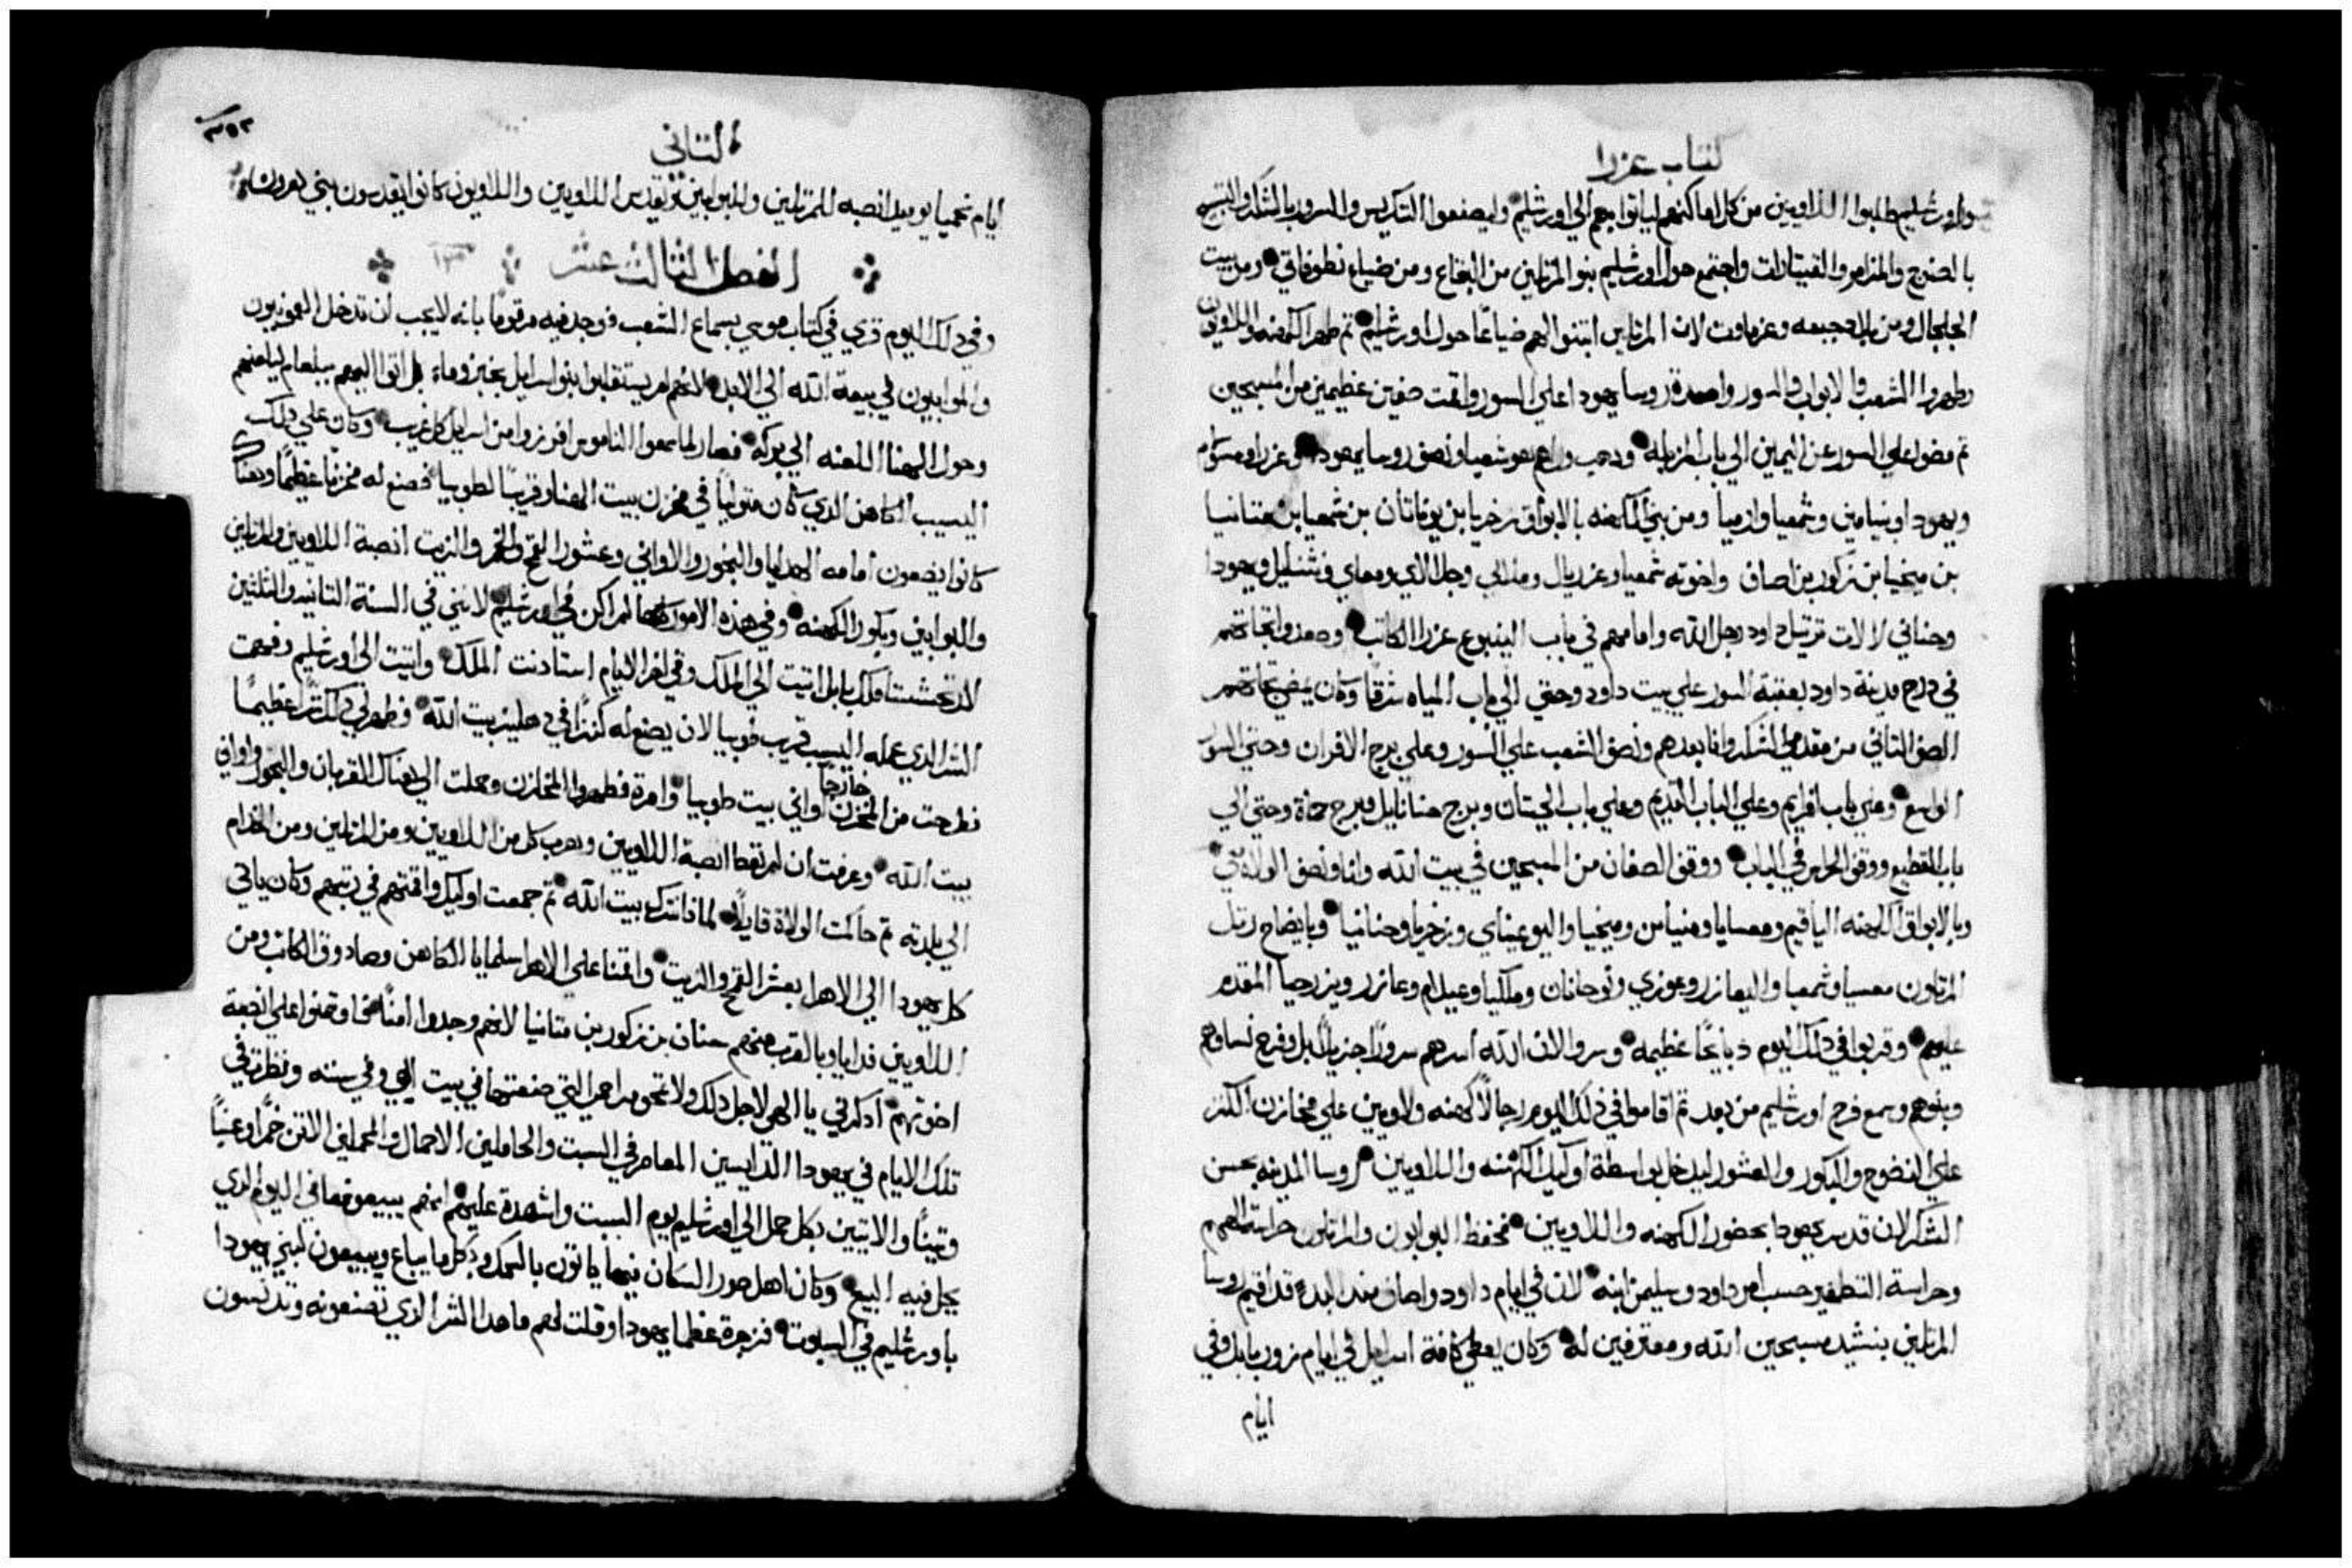 كتاب عزرا
سور اورشليم طلبوا اللاويين من كل اماكنهم لياتوا بهم الي اورشليم وليصنعوا التكريس والسرور بالشكر والتسبيح
بالصنوج والمزامير والقيثارات واجتمع حول اورشليم بنو المرتلين من البقاع ومن ضياع نطوفاتي ومن بيت
الجلجال ومن بلاد جبعه وعزماوت لان المرتلين ابتنوا لهم ضياعًا حول اورشليم ثم طهر الكهنه واللاويون
وطهروا الشعب والابواب والسور واصعدة روسا يهودا علي السور واقمت صفين عظيمين من المسبحين
ثم مضوا علي السور عن اليمين الي باب المزبله وذهب وراهم هوشعيا ونصف روسا يهودا وعزرا ومسولام
ويهودا وبنيامين وشمعيا وارميا ومن بني الكهنه بالابواق زخريا بن يوناتان بن شمعيا بن متانيا
بن ميخيا بن زكور بن اصاف واخوته شمعيا وعزريال وملالي وجلالاي ومعاي ونثنايل ويهودا
وحناني لالات ترتيل داود رجل الله وامامهم في باب الينبوع عزرا الكاتب وصعدوا تجاههم
في درج مدينة داود بعقبة السور علي بيت داود وحتي الي باب المياه شرقا وكان يمضي تجاههم
الصف الثاني من مقدمي الشكر وانا بعدهم ونصف الشعب علي السور وعلي برج الافران وحتي السور
الواسع وعلي باب افرايم وعلي الباب القديم وعلي باب الحيتان وبرج حنانايل وبرج حماة وحتي الي
باب القطيع ووقف الحراس في الباب ووقف الصفان من المسبحين في بيت الله وانا ونصف الولاة معي
وبالابواق الكهنه الياقيم ومعسايا ومنيامن وميخيا واليوعيناي وزخريا وحنانيا وبايضاح رتل
المرتلون معسيا وشمعيا واليعازر وعوزي ويوحانان وملكيا وعيلام وعازر ويزرحيا المقدم
عليهم وقربوا في ذلك اليوم ذبايحًا عظيمه وسروا لان الله اسرهم سرورًا جزيلًا بل وفرح نساوهم
وبنوهم وسمع فرح اورشليم من بعد ثم اقاموا في ذلك اليوم رجالًا كهنه ولاويين علي مخازن الكنز
علي النضوح والبكور والعشور ليدخل بواسطة اوليك الكهنه واللاويين روسا المدينه بحسن
الشكر لان قد سر يهودا بحضور الكهنه واللاويين فحفظ البوابون والمرتلون حراسة الههم
وحراسة التطهير حسب امر داود وسليمن ابنه لان في ايام داود واصاف منذ البدء قد اقيم روسا
المرتلين بنشيد مسبحين الله ومعترفين له وكان يعطي كافة اسرايل في ايام زور بابل وفي
ايام
الثاني
٣٥٢
ايام نحميا يوميد انصبه للمرتلين وللبوابين وتقدس اللاويين واللاويون كانوا يقدسون بني هرون
الفصل الثالث عشر ١٣
وفي ذلك اليوم قري في كتاب موسي بسماع الشعب فوجد فيه مرقومًا بانه لا يجب ان تدخل العمونيون
والموابيون في بيعة الله الي الابد لانهم لم يستقبلوا بنو اسرايل بخبز وماء بل اتوا اليهم ببلعام ليلعنهم
وحول الهنا اللعنه الي بركه فصار لما سمعوا الناموس افرزوا من اسرايل كل غريب وكان علي ذلك
اليسيب الكاهن الذي كان متوليًا في مخزن بيت الهنا وقريبًا لطوبيا فصنع له مخزنًا عظيمًا وهناك
كانوا يضعون امامه الهدايا والبخور والاواني وعشور القمح والخمر والزيت انصبة اللاويين والمرتلين
والبوابين وبكور الكهنه وفي هذه الامور كلها لم اكن في اورشليم لانني في السنة الثانيه والثلثين
لارتحششتا ملك بابل اتيت الي الملك وفي اخر الايام استادنت الملك واتيت الي اورشليم وفهمت
الشر الذي عمله اليسيب قريب طوبيا لان يصنع له كنزًا في دهليز بيت الله وظهر لي ذلك شرًا عظيمًا
فطرحت من المخزن خارجًا اواني بيت طوبيا وامرة فطهروا المخازن وحملت الي هناك القربان والبخور واواني
بيت الله وعرفت ان لم تعطا انصبة اللاويين وهرب كل من اللاويين ومن المرتلين ومن الخدام
الي بلدته ثم حاكمت الولاة قايلًا لماذا نترك بيت الله ثم جمعت اوليك واقمتهم في رتبهم وكان ياتي
كل يهودا الي الاهرا بعشر القمح والزيت واقمنا علي الاهرا سلمايا الكاهن وصادوق الكاتب ومن
اللاويين فدايا وبالقرب منهم حنان بن زكور بن متانيا لانهم وجدوا امنًا وتمنوا علي انصبة
اخوتهم اذكرني يا الهي لاجل ذلك ولا تمحو مراحمي التي صنعتها في بيت الهي وفي سننه ونظرت في
تلك الايام في يهودا الدايسين المعاصر في السبت والحاملين الاحمال والمحملين الاتن خمرًا وعنبًا
وتينًا والاتيين بكل حمل الي اورشليم يوم السبت واشهدة عليهم انهم يبيعوهما في اليوم الذي
يحل فيه البيع وكان اهل صور السكان فيها ياتون بالسمك وبكل ما يباع ويبيعون لبني يهودا
باورشليم في السبوت فزجرة عظما يهودا وقلت لهم ما هذا الشر الذي تصنعونه وتدنسون